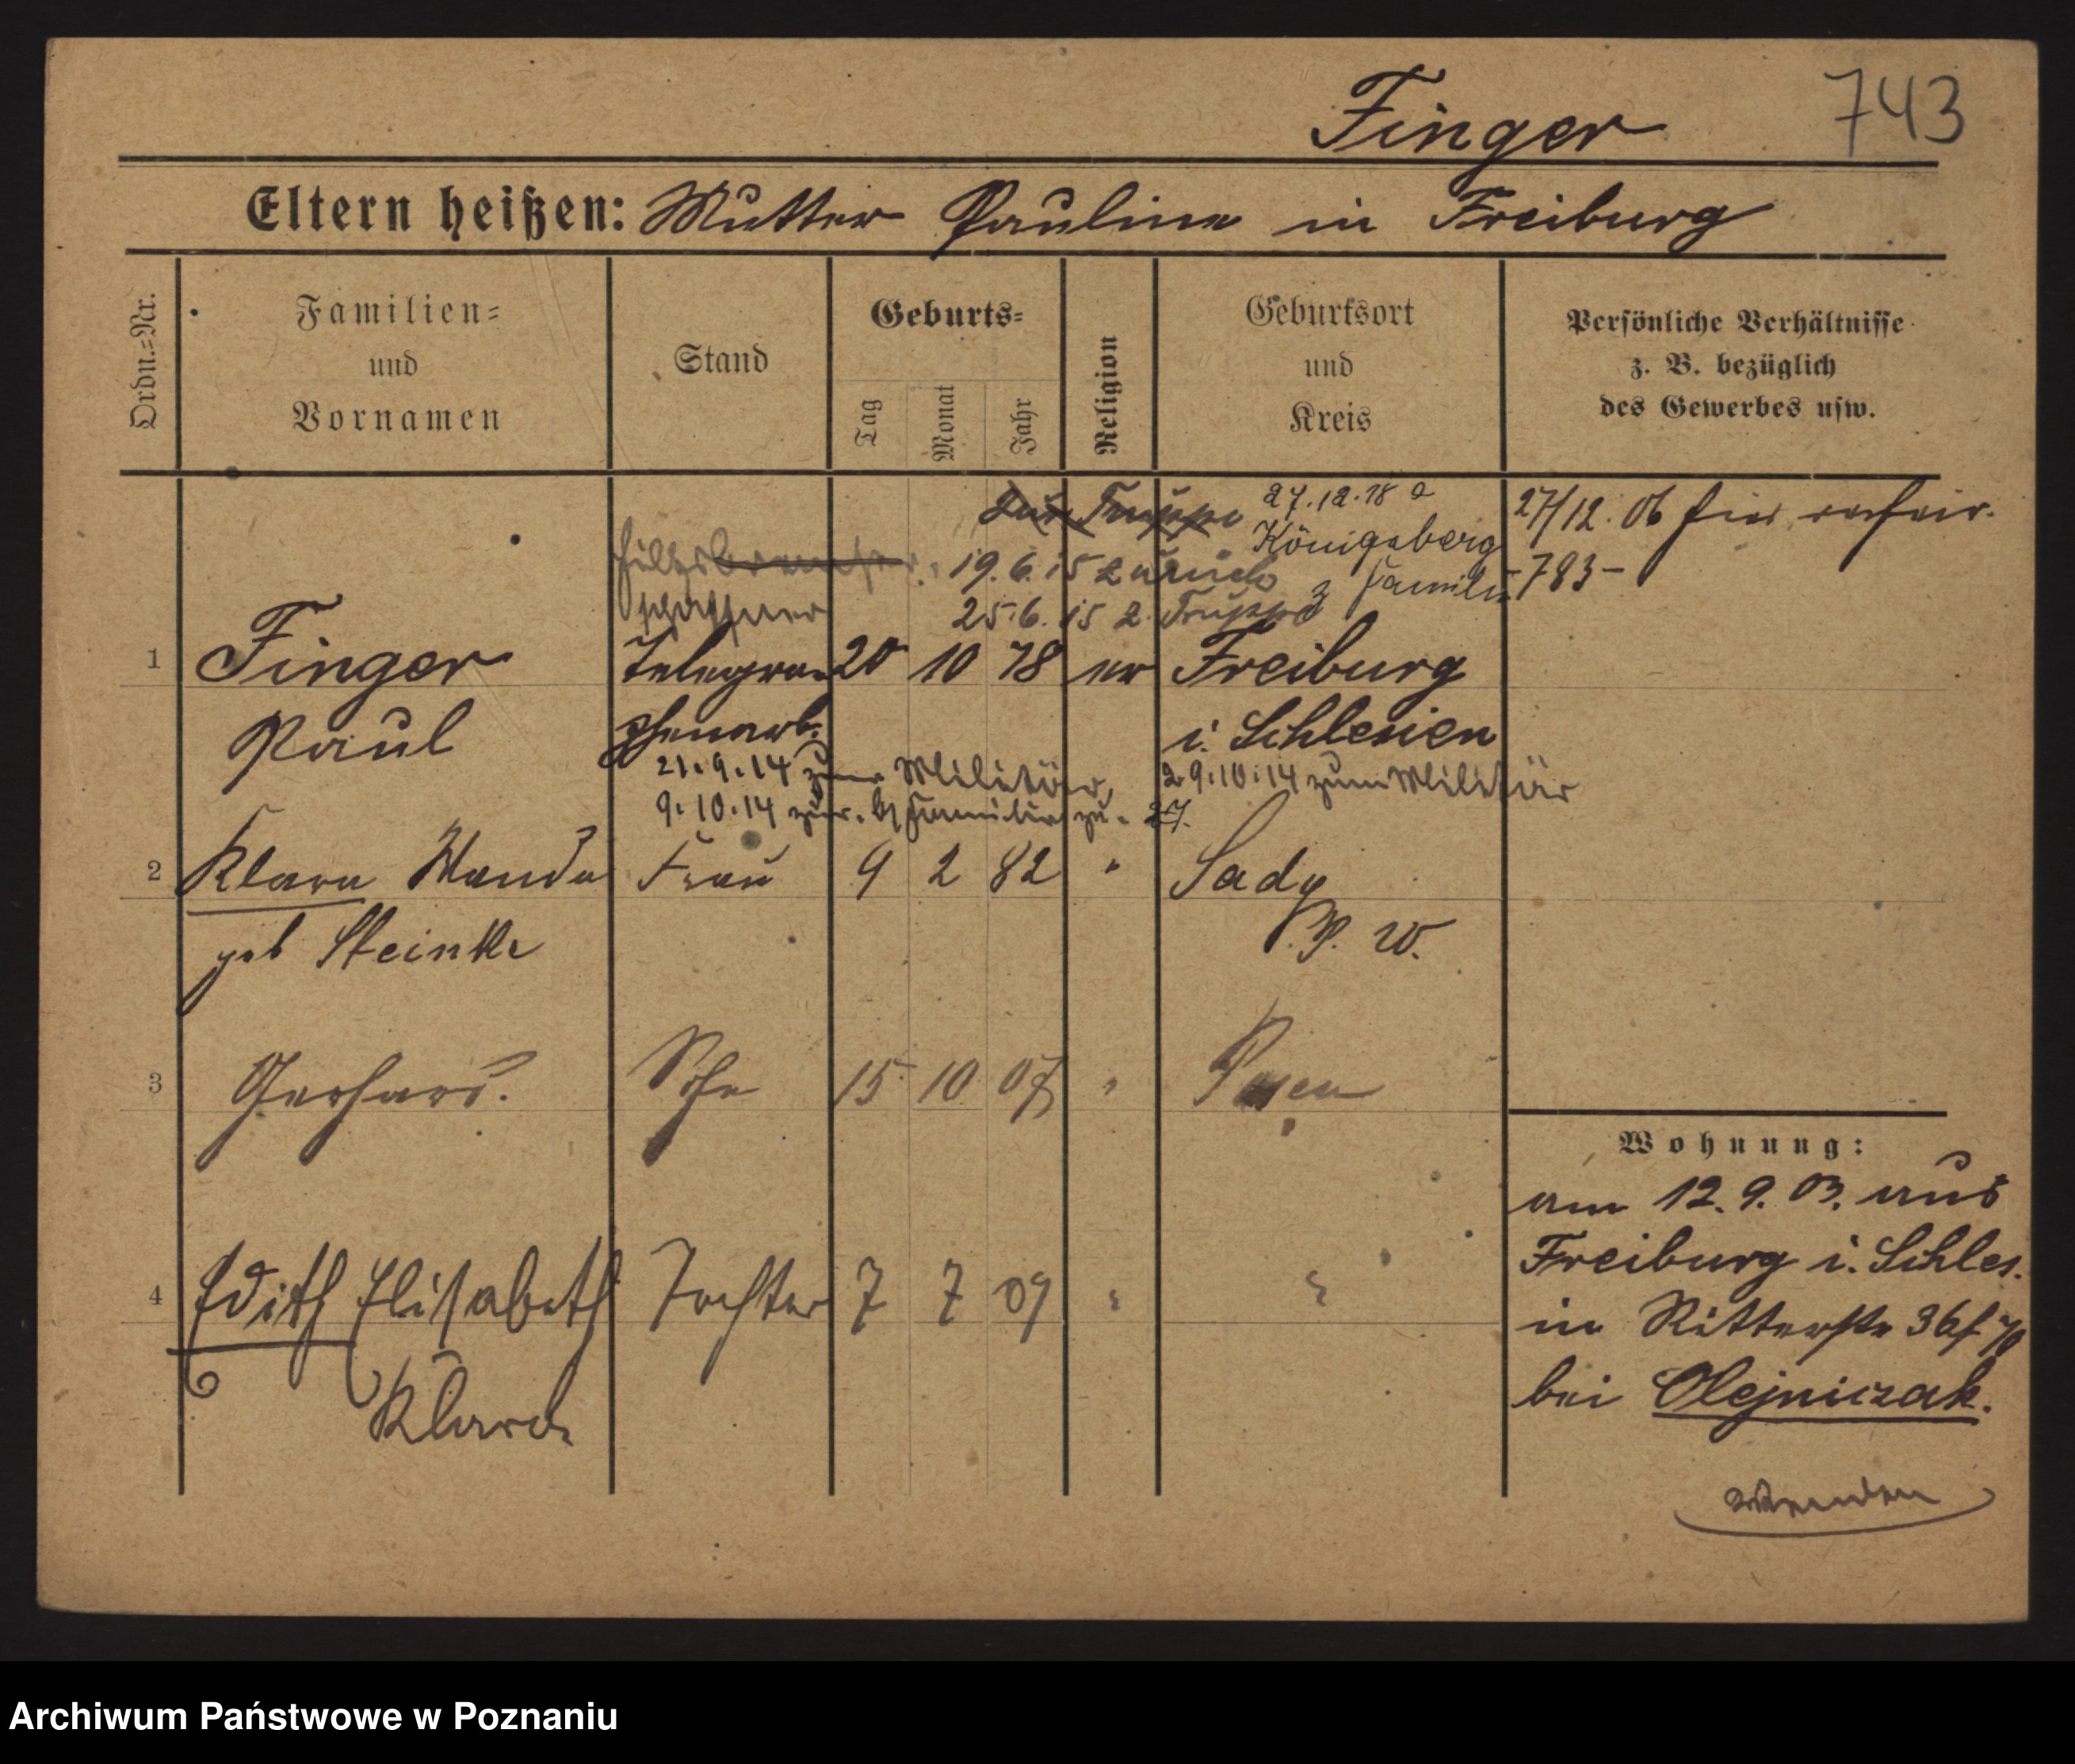 Finger 743
Eltern heißen: Mutter Pauline in Freiburg
Ordn.=Nr.
Familien=
und
Vornamen
Stand
Geburts=
Tag
Monat
Jahr
Religion
Geburtsort
und
Kreis
Persönliche Verhältnisse
z. B. bezüglich
des Gewerbes usw.
zur Truppe
27.12.18 a
Königsberg
z Familie
27/12. 06 hier
-783-
Hilfsbremser
schaffner
19.6.15 zurück
25.6.15 z. Truppe
1 Finger Telegra= 20 10 78 ev Freiburg
Paul phenarb. i. Schlesien
21.9.14 zum Militär,
9.10.14 zur. b/ Familie zu. 27.
29.10.14 zum Militär
2 Klara Wanda Frau 9 2 82 " Sady
geb Steinke P. W.
3 Gerhard. Sohn 15 10 07 " Posen
4 Edith Elisabeth Tochter 7 7 09 " "
Klara
Wohnung:
am 12.9.03. aus
Freiburg i. Schles.
in Ritterstr 36
bei Olejniczak.
wenden
Archiwum Państwowe w Poznaniu